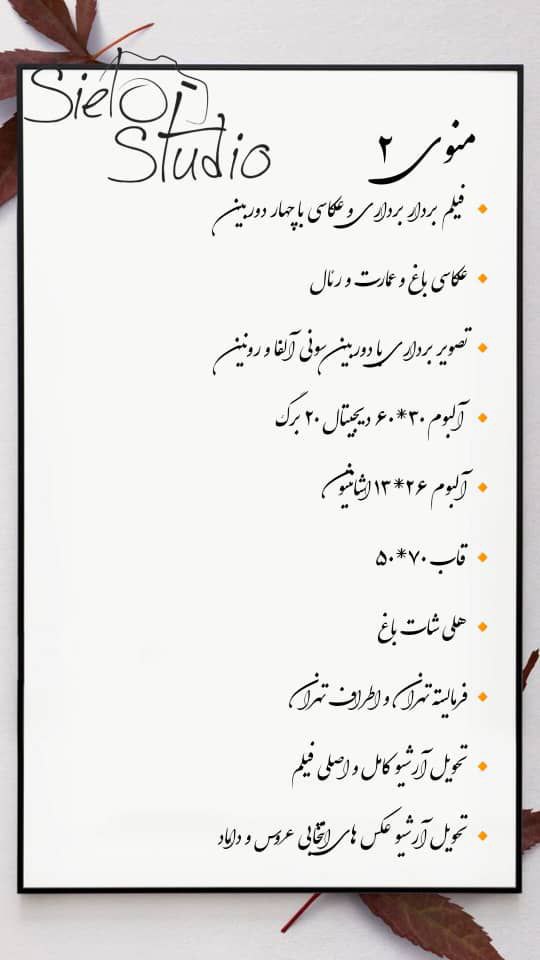 Sietoi
Studio
منوی ۲
فیلم بردار برداری و عکاسی با چهار دوربین
عکاسی باغ و عمارت و رئال
تصویر برداری با دوربین سونی آلفا و رونین
آلبوم ۳۰*۶۰ دیجیتال ۲۰ برگ
آلبوم ۲۶*۱۳ اشانتیون
قاب ۷۰*۵۰
هلی شات باغ
فرمالیته تهران و اطراف تهران
تحویل آرشیو کامل و اصلی فیلم
تحویل آرشیو عکس های انتخابی عروس و داماد